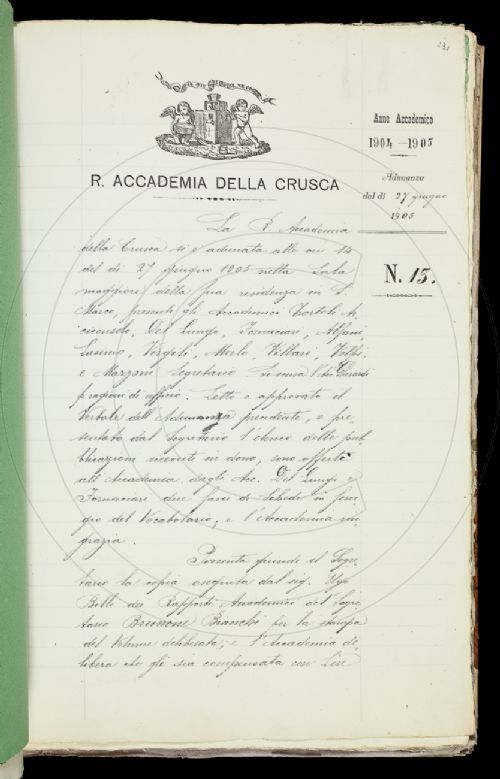 231
Anno Accademico
1904 - 1905
Adunanza
del dì 27 giugno
1905
N. 15.
R. ACCADEMIA DELLA CRUSCA
La R. Accademia
della Crusca si è adunata alle ore 14
del dì 27 giugno 1905 nella Sala
maggiore della sua residenza in S.
Marco, presenti gli Accademici Tortoli Ar
ciconsolo, Del Lungo, Fornaciari, Alfani,
Vergoli, Merlo, Villari,
e Mazzoni Segretario. Si scusa
p ragioni di ufficio. Letto e approvato il
Verbale dell'Adunanza precedente, e pre
sentato dal Segretario l'elenco delle pub
blicazioni ricevute in dono, sono offerte
all'Accademia dagli Acc. Del Lungo e
Fornaciari due Schede in ser
gio del Vocabolario; e l'Accademia rin
grazia.
Presenta quindi il Segre
tario la copia eseguita dal sig. Ugo
dei Rapporti Accademici del Segre
tario Brunone Bianchi per la stampa
del Volume deliberata; e l'Accademia de
libera che gli sia compensata con Lire